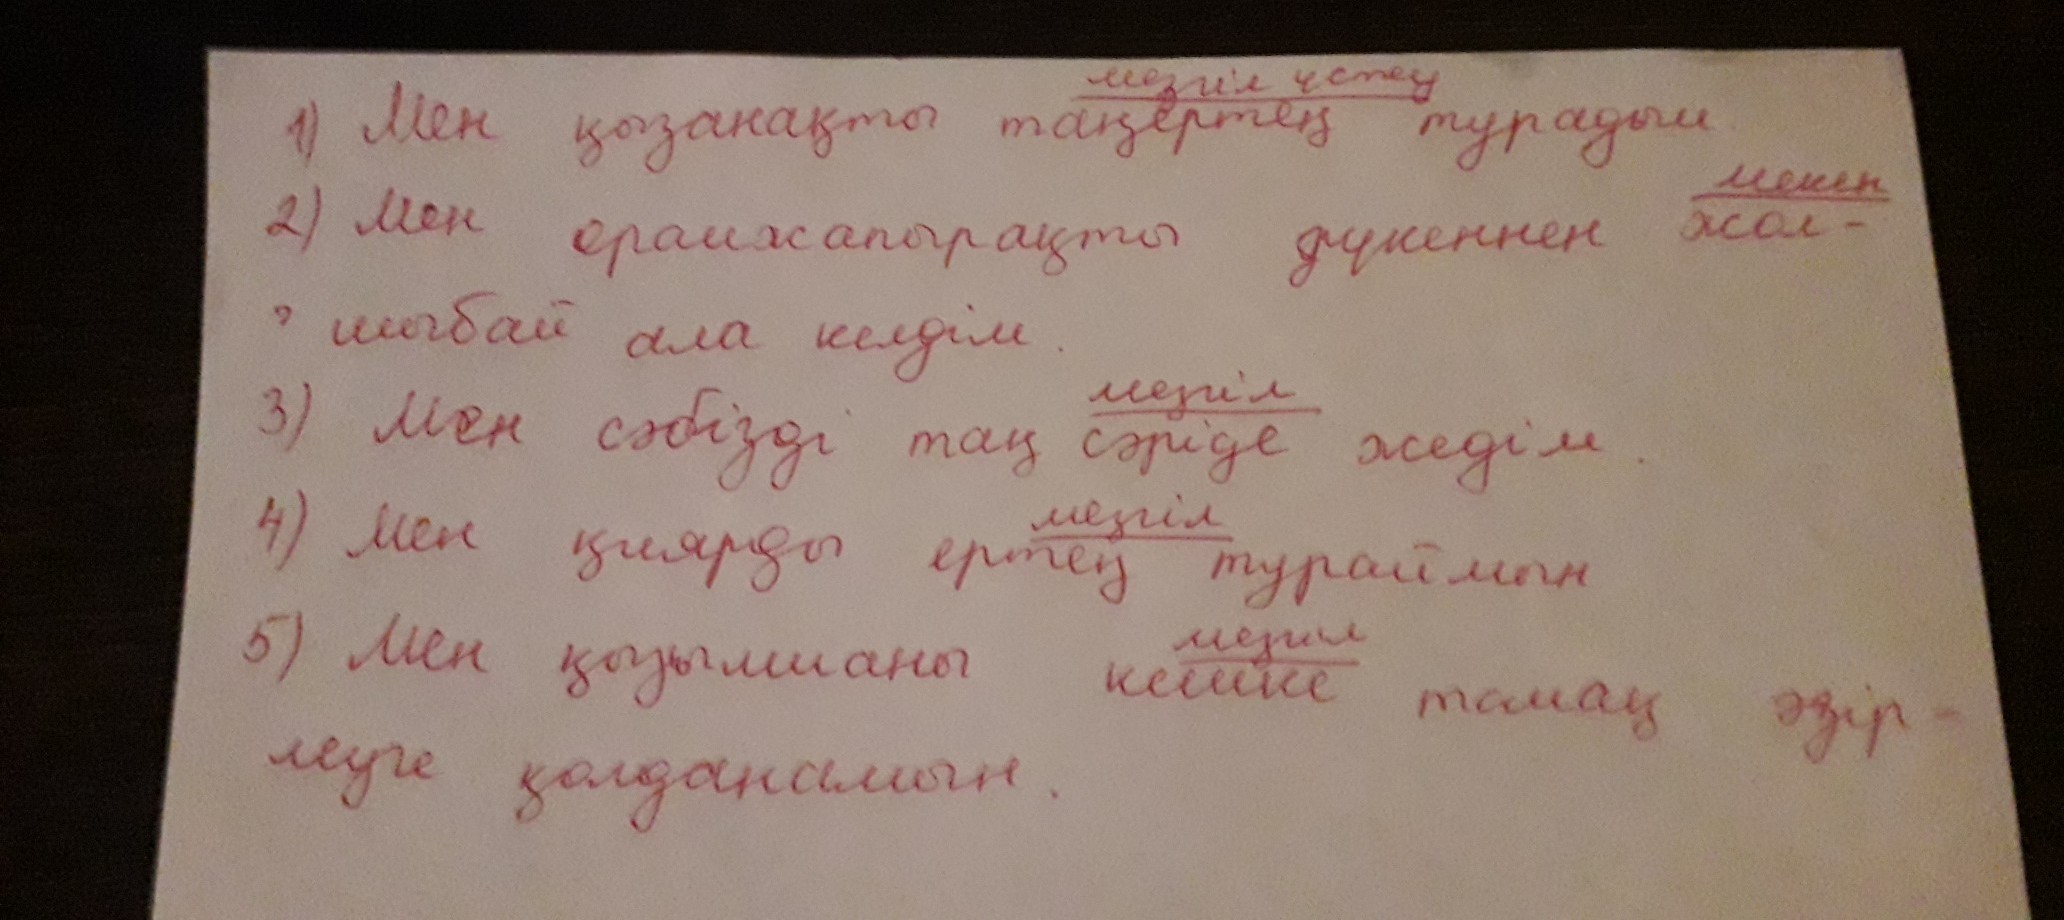 мезгіл үстеу
1) Мен қызанақты таңертең турадым.
мекен
2) Мен орамжапырақты дүкеннен жол-
шыбай ала келдім.
мезгіл
3) Мен сәбізді таң сәріде жедім.
мезгіл
4) Мен қиярды ертең тураймын
мезгіл
5) Мен қызылшаны кешке тамақ әзір-
леуге қолданамын.